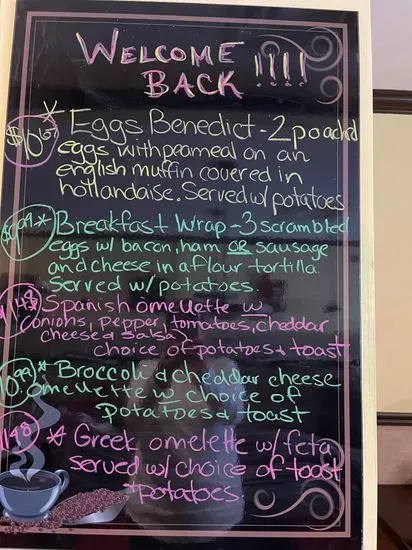 WELCOME
BACK !!!!
* Eggs Benedict - 2 poached
eggs with peameal on an
english muffin covered in
hollandaise. Served w/ potatoes
* Breakfast Wrap - 3 scrambled
eggs w/ bacon, ham OR sausage
and cheese in a flour tortilla.
Served w/ potatoes
* Spanish omellette w
onions, pepper, tomatoes, cheddar
cheese & salsa
choice of potatoes & toast
* Broccoli & cheddar cheese
omellette w choice of
potatoes & toast
* Greek omelette w/ feta
served w/ choice of toast
+ potatoes